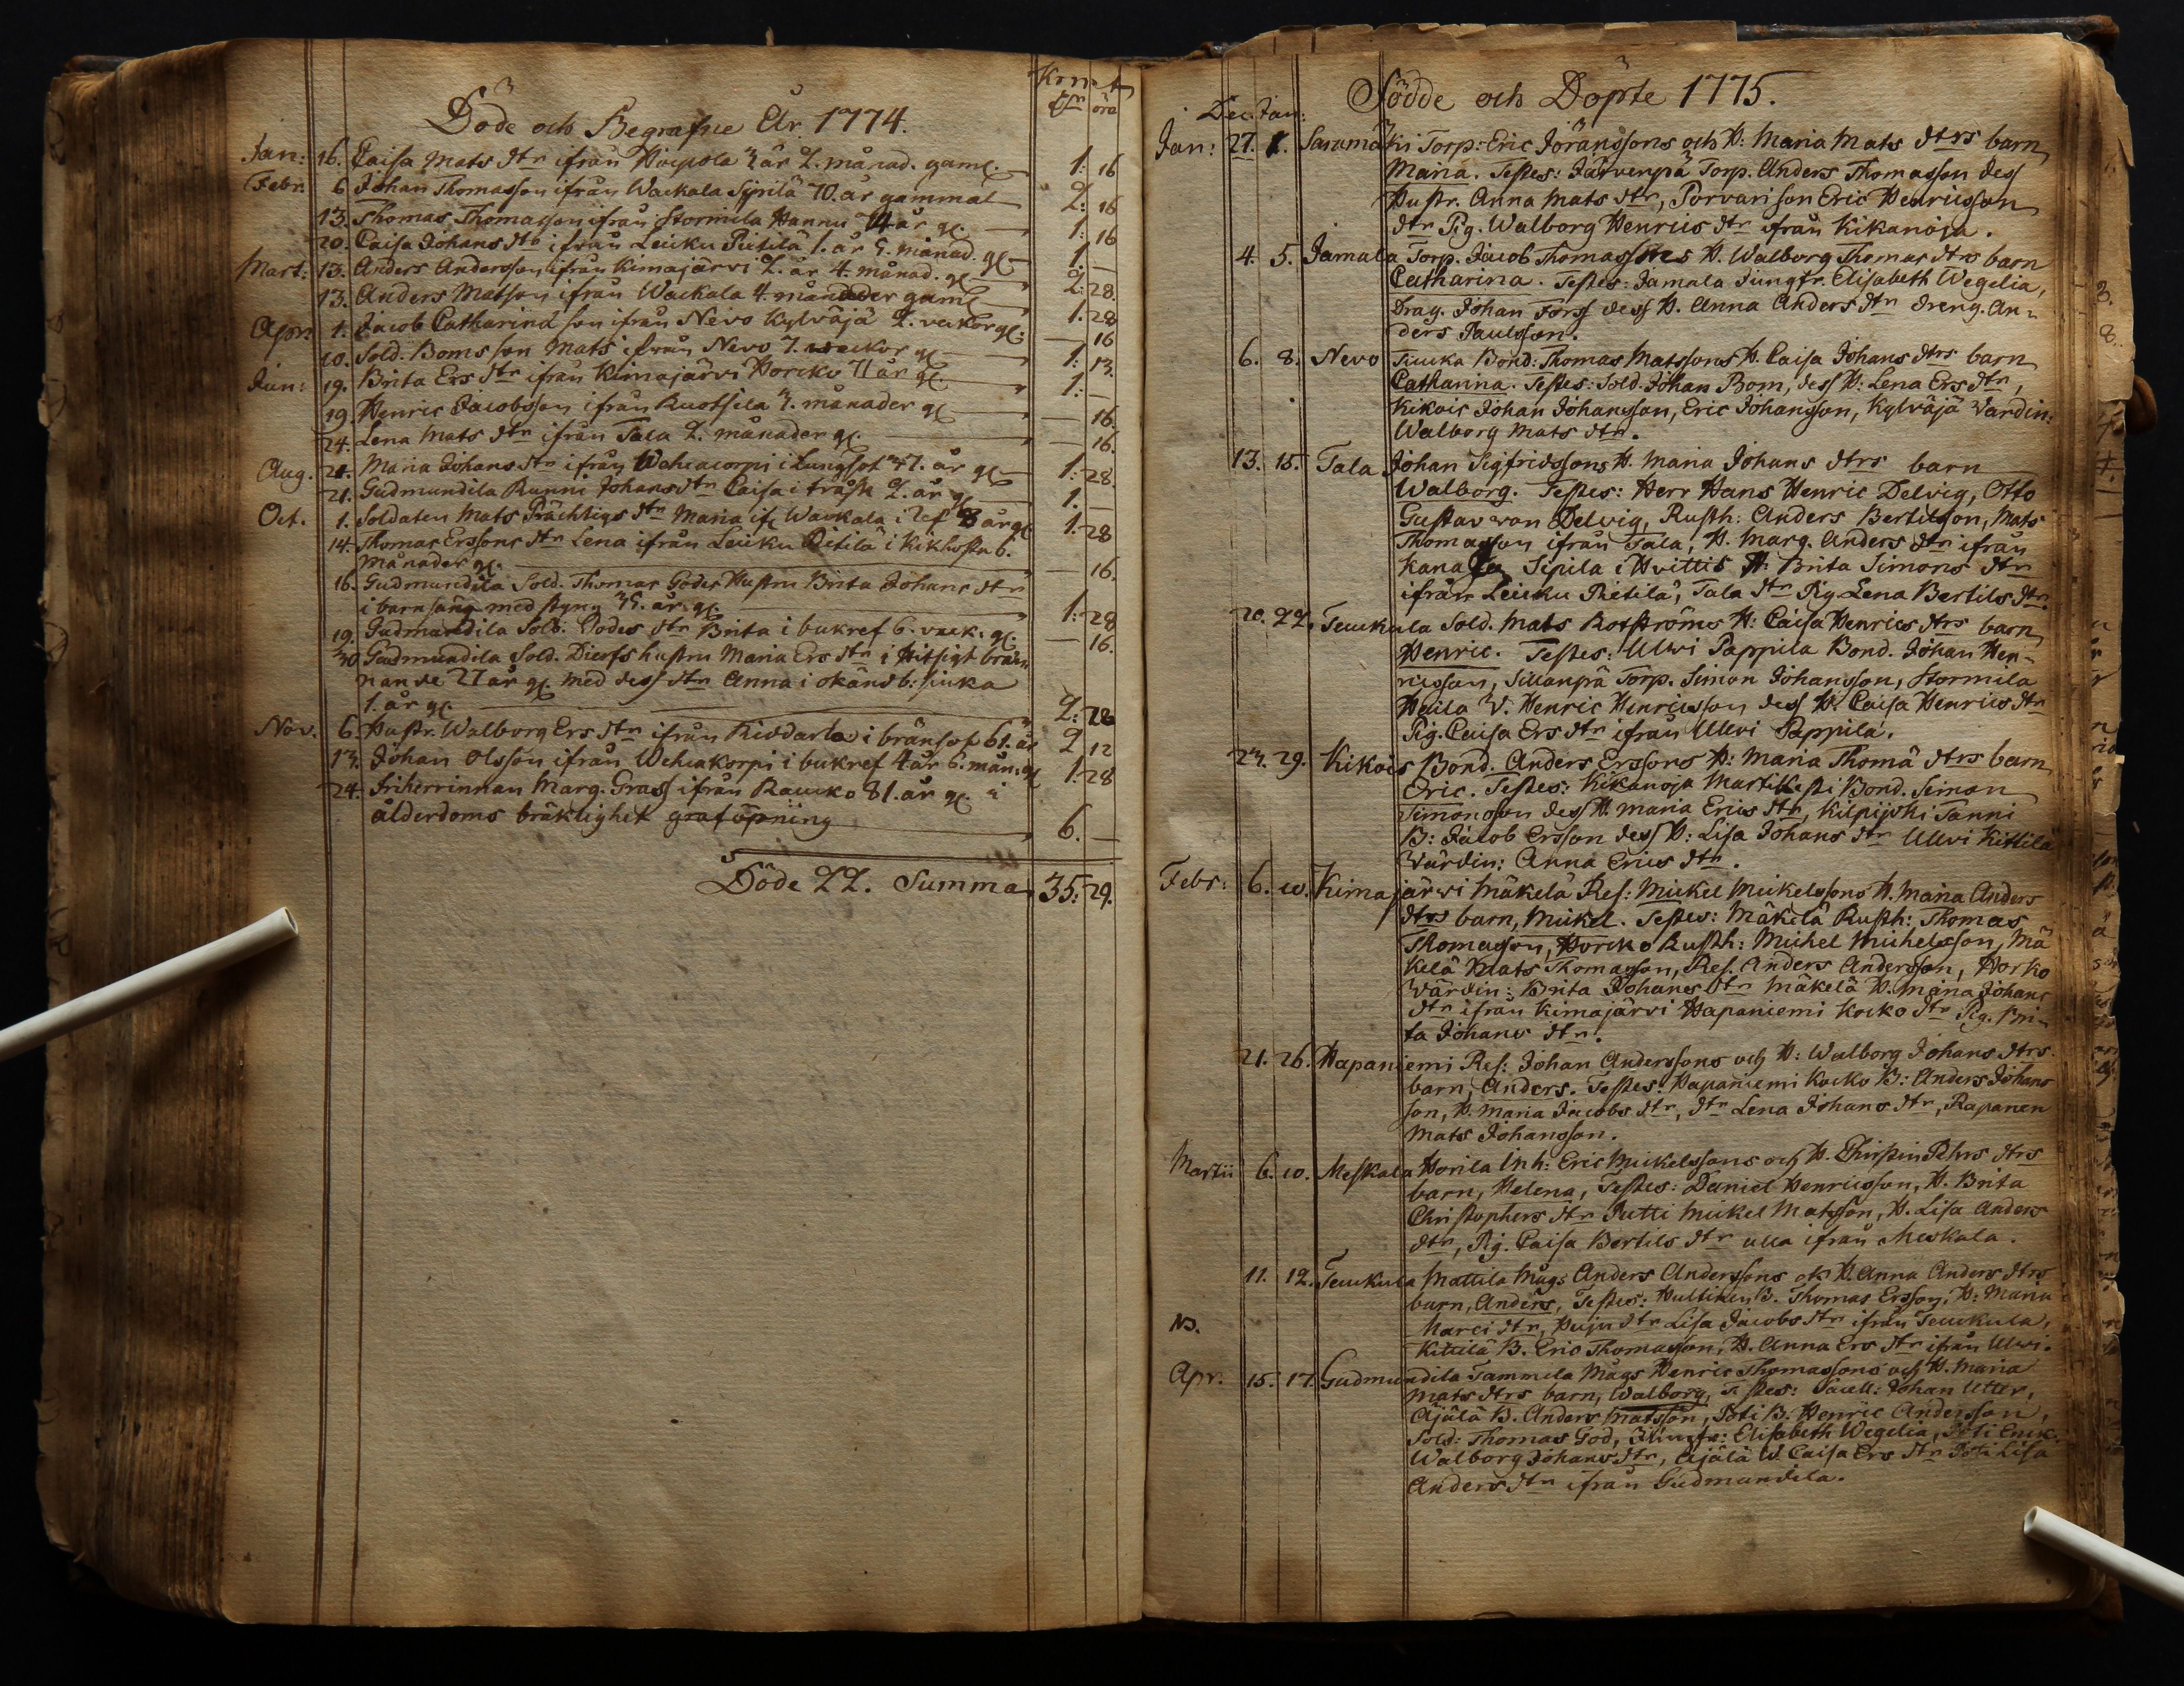 Döde och Begrafne År 1774.
Jan: 16. Caisa Mats dtr ifrån 3 år 2. månad. gaml. 1: 16
Febr. 6 Johan Thomasson ifrån Wackala Sipilä 70. år gammal 2: 16
13. Thomas Thomasson ifrån Stormila Hannu 74 år gl. 1: 16
20. Caisa Johans dtr ifrån Leiku Pietilä 1. år 5. månad. gl 1. —
Mart: 13. Anders Andersson ifrån Kimajärvi 2. år 4. månad. gl 2: 28.
13. Anders Matson ifrån Wackala 4. månader gaml 1: 28
Apr: 1. Jacob Catharinæ son ifrån Nevo Kylväjä 2. veckor gl: — 16
10. Sold. Boms son Mats ifrån Nevo 7. weckor gl 1: 13.
Jun: 19. Brita Ers dtr ifrån Kimajärvi Horcko 71 år gl. 1: —
19. Henric Jacobsson ifrån Ruotsila 3. månader gl — 16.
24. Lena Mats dtr ifrån Tala 2. månader gl. — 16.
Aug. 21. Maria Johans dtr ifrån Wehcacorpi i Lungsot 47. år gl 1: 28.
21. Gudmundila Runni Johans dtr Caisa i tråsk 2. år gl 1. —
Oct. 1. Soldaten Mats Prächtigs dtr Maria if. Wackala i ref 8 år gl 1: 28
14. Thomas Erssons dtr Lena ifrån Leiku Pietilä i Kikhosta 6.
månader gl. — 16.
16. Gudmundila Sold. Thomas Godes Hustru Brita Johans dtr
i barnsäng med styng 35. år. gl. 1: 28
19. Gudmundila Sold. Dodes dtr Brita i bukref 6. veck. gl. — 16.
30 Gudmundila Sold. Diecfs hustru Maria Ers dtr i Hitsigt brän
nande 27 år gl. med dess dtr Anna i okänd b: siuka
1. år gl. 2: 28
Nov. 6. Hustr. Walborg Ers dtr ifrån Kiddarla i bränsot 61. år 2 12
13. Johan Olsson ifrån Wehcakorpi i bukref 4 år 6. mån. gl 1: 28
24. Friherrinnan Marg. Grass ifrån Raucko 81. år gl. i
ålderdoms bräklighet graföpning 6. —
Döde 22. Summa 35: 29.
Födde och Döpte 1775.
Dec. Jan:
Jan: 27. 1. Saramäki Torp: Eric Jöranssons och H: Maria Mats dtrs barn
Maria. Testes: Järvenpä Torp. Anders Thomasson dess
Hustr. Anna Mats dtr, Porvarison Eric Henricsson
dtr Pig. Walborg Henrics dtr ifrån Kikanoja.
4. 5. Jamala Torp. Jacob Thomassons H. Walborg Thomas dtrs barn
Catharina. Testes: Jamala Jungfr. Elisabeth Wegelia,
Drag. Johan Forss dess H. Anna Anders dtr Dreng. An-
ders Paulsson.
6. 8. Nevo Siucka Bond: Thomas Matssons H. Caisa Johans dtrs barn
Catharina. Testes: Sold. Johan Bom, dess H: Lena Ers dtr,
Kikois Johan Johansson, Eric Johansson, Kylväjä Värdin:
Walborg Mats dtr.
13. 15. Tala Johan Sigfridssons H. Maria Johans dtrs barn
Walborg. Testes: Herr Hans Henric Delvig, Otto
Gustav von Delvig, Rusth: Anders Bertilsson, Mats
Thomasson ifrån Tala, H. Marg. Anders dtr ifrån
Kanaja Sipila i Hvittis H. Brita Simons dtr
ifrån Leiku Pietilä, Tala dtr Pig. Lena Bertils dtr.
20. 22. Teuckula Sold. Mats Rotströms H: Caisa Henrics dtrs barn
Henric. Testes: Ulwi Pappila Bond. Johan Hen-
ricsson, Sillanpä Torp. Simon Johansson, Stormila
Heila V. Henric Henricsson dess H. Caisa Henrics dtr
Pig. Caisa Ers dtr ifrån Ulwi Pappila.
27. 29. Kikois Bond. Anders Erssons H: Maria Thomä dtrs barn
Eric. Testes: Kikanoja Bond. Simon
Simonsson dess H. Maria Erics dtr, Kilpijoki Tanni
B: Jacob Ersson dess H: Lisa Johans dtr Ulwi Kittilä
Värdin: Anna Erics dtr.
Febr: 6. 10. Kimajärwi Mäkelä Res: Mickel Mickelssons H. Maria Anders
dtrs barn, Mickel. Testes: Mäkelä Rusth: Thomas
Thomasson, Horcko Rusth: Michel Michelsson, Mä
kelä Mats Thomasson, Res. Anders Andersson, Horko
Värdin: Brita Johans dtr Mäkelä H. Maria Johans
dtr ifrån Kimajärvi Hapaniemi Kocko dtr Pig. Bri-
ta Johans dtr.
21. 26. Hapaniemi Res: Johan Anderssons och H: Walborg Johans dtrs
barn, Anders. Testes: Hapaniemi Kocko B: Anders Johans
son, H. Maria Jacobs dtr, dtr Lena Johans dtr, Rapanen
Mats Johansson.
Martii 6. 10. Meskala Horila Inh: Eric Mickelssons och H. Chirstin Pehrs dtrs
barn, Helena, Testes: Daniel Henricsson, H. Brita
Christophers dtr Jutti Mickel Matsson, H. Lisa Anders
dtr, Pig. Caisa Bertils dtr alla ifrån Meskala.
11. 12. Teuckula Mattila Mågs Anders Anderssons ok H. Anna Anders dtrs
barn, Anders, Testes: B. Thomas Ersson, H: Maria
NB. Marci dtr, Huju dtr Lisa Jacobs dtr ifrån Teuckula,
Kittilä B. Eric Thomasson, H. Anna Ers dtr ifrån Ulwi.
Apr. 15. 17. Gudmundila Tammela Mågs Henric Thomassons och H. Maria
Mats dtrs barn, Walborg, Testes: Sacell: Johan Utter,
Äjälä B. Anders Matsson, Poti B. Henric Andersson,
Sold: Thomas God, Jungfr: Elisabeth Wegelia, Poti Enk.
Walborg Johans dtr, Äjälä W. Caisa Ers dtr Poti Lisa
Anders dtr ifrån Gudmundila.